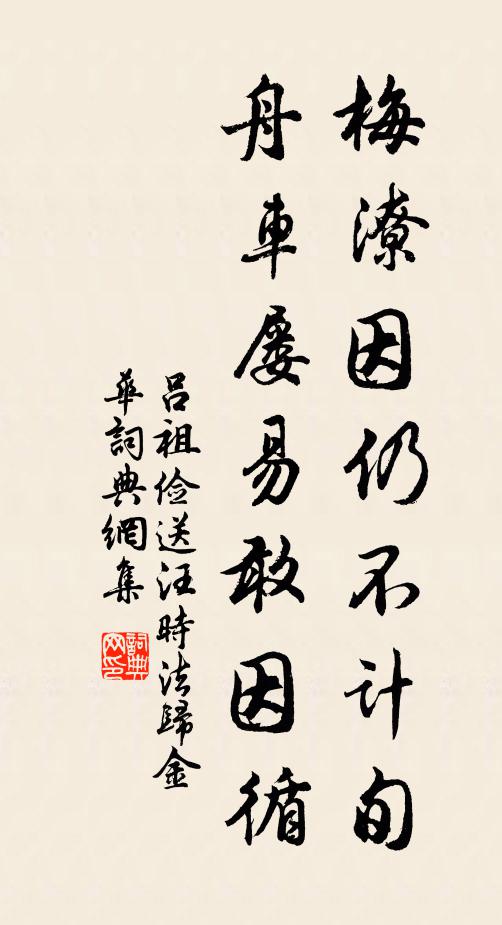 梅潦因仍不計旬
舟車屡易敢因循
呂祖儉送汪時法歸金
華詞典網集
詞典网印